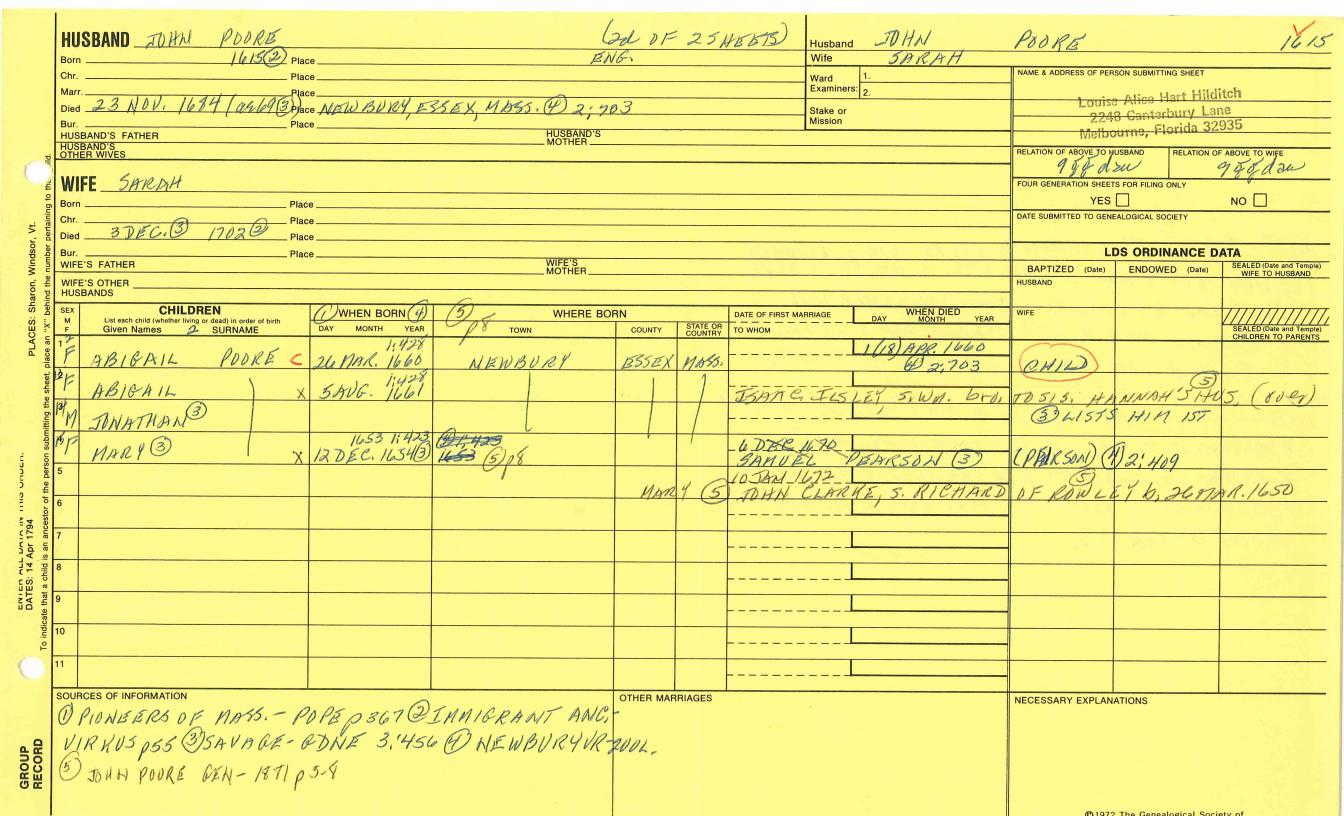 HUSBAND JOHN POORE (2d OF 2 SHEETS)
Born 1615 ② Place ENG.
Chr. Place
Marr. Place
Died 23 NOV. 1684 (ae 69 ③ Place NEWBURY, ESSEX, MASS. ④ 2:703
Bur. Place
HUSBAND'S FATHER HUSBAND'S MOTHER
HUSBAND'S OTHER WIVES
WIFE SARAH
Born Place
Chr. Place
Died 3 DEC. ③ 1702 ② Place
Bur. Place
WIFE'S FATHER WIFE'S MOTHER
WIFE'S OTHER HUSBANDS
Husband JOHN POORE 1615
Wife SARAH
Ward Examiners: 1.
2.
Stake or Mission
NAME & ADDRESS OF PERSON SUBMITTING SHEET
Louise Alice Hart Hilditch
2248 Canterbury Lane
Melbourne, Florida 32935
RELATION OF ABOVE TO HUSBAND RELATION OF ABOVE TO WIFE
FOUR GENERATION SHEETS FOR FILING ONLY
YES NO
DATE SUBMITTED TO GENEALOGICAL SOCIETY
LDS ORDINANCE DATA
BAPTIZED (Date) ENDOWED (Date) SEALED (Date and Temple) WIFE TO HUSBAND
HUSBAND
WIFE
SEALED (Date and Temple) CHILDREN TO PARENTS
SEX M F
CHILDREN
List each child (whether living or dead) in order of birth
Given Names SURNAME
① WHEN BORN ④
DAY MONTH YEAR
⑤ p8
WHERE BORN
TOWN COUNTY STATE OR COUNTRY
DATE OF FIRST MARRIAGE
TO WHOM
WHEN DIED
DAY MONTH YEAR
1 F ABIGAIL POORE C 26 MAR. 1660 1:428 NEWBURY ESSEX MASS. 1(18) APR. 1660 ④ 2:703 CHILD
F ABIGAIL X 5 AUG. 1661 1:428 ISAAC ILSLEY, s. Wm. bro. TO SIS. HANNAH'S HUS. ⑤ (over)
M JONATHAN ③ ③ LISTS HIM 1ST
F MARY ③ X 1653 1:423
12 DEC. 1654 ③ 1653 ⑤ p8
6 DEC 1670
SAMUEL PEARSON ③ (PEIRSON) ④ 2:409
10 JAN 1672
MARY ⑤ JOHN CLARKE, s. RICHARD OF ROWLEY ⑤ b. 26 MAR. 1650
5
6
7
8
9
10
11
SOURCES OF INFORMATION
① PIONEERS OF MASS. - POPE p367 ② IMMIGRANT ANC.-
VIRKUS p55 ③ SAVAGE - GDNE 3:456 ④ NEWBURY VR - 2 VOL.
⑤ JOHN POORE GEN - 1871 p 5-8
OTHER MARRIAGES
NECESSARY EXPLANATIONS
©1972 The Genealogical Society of
PLACES: Sharon, Windsor, Vt.
ENTER ALL DATA IN THIS ORDER:
DATES: 14 Apr 1794
To indicate that a child is an ancestor of the person submitting the sheet, place an "X" behind the number pertaining to the child.
GROUP RECORD